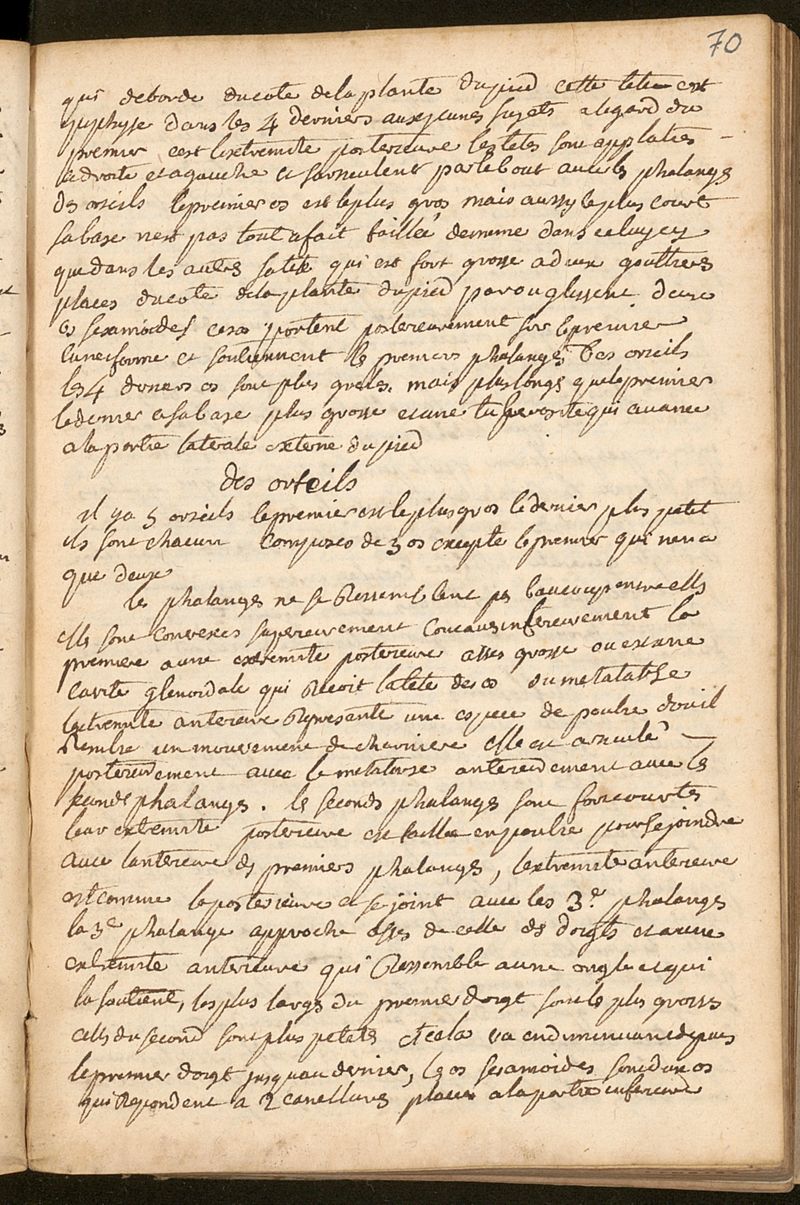 70
qui deborde ducote dela plante du pied cette tete est
epiphyse dans les 4 derniers aux jeunes sujets alegard du
premier cest lextremite posterieure les tetes sont applaties
adroite et agauche et sarticulent par le bout avec les phalanges
des orteils le premier os est le plus gros mais aussy le plus court
sa base nest pas tout afait taillé de meme dans celuy cy
que dans les autres sa tete qui est fort grosse a deux gouttieres
places du cote dela plante du pied par ou glissent deux
os sesamoides ceux portent posterieurement sur le premier
cuneiforme et soutiennent les premiers phalanges des orteils
les 4 derniers os sont plus greles mais plus longs que le premier
le dernier a sa base plus grosse et une tuberosite qui avance
a la partie laterale externe du pied
des orteils
il y a 5 orteils le premier est le plus gros le dernier plus petit
ils sont chacun composes de 3 os excepte le premier qui nena
que deux
les phalanges ne se ressemblent pas beaucoup entre elles
elles sont convexes superieurement concaves inferieurement la
premiere a une extremite posterieure asses grosse ou est une
cavite glenoidale qui recoit la tete des os du metatarse
lextremite anterieure represente une espece de poulie dou il
semble un mouvement de charniere elle est articulé
posterieurement avec le metatarse anterieurement avec les
secondes phalanges. les seconds phalanges sont fort courtes
leur extremite posterieure est taillee en poulie pour se joindre
avec lanterieure des premiers phalanges, lextremite anterieure
est comme la posterieure et se joint avec les 3e. phalanges
la 3e phalange approche asses de celle des doigts et a une
extremite anterieure qui ressemble a une ongle et qui
la soutient, les plus larges du premier doigt sont les plus grosses
celles du second sont plus petites et cela va en diminuant depuis
le premier doigt jusquau dernier, les os sesamoides sont deux os
qui repondent a 2 canellures places a la partie inferieure